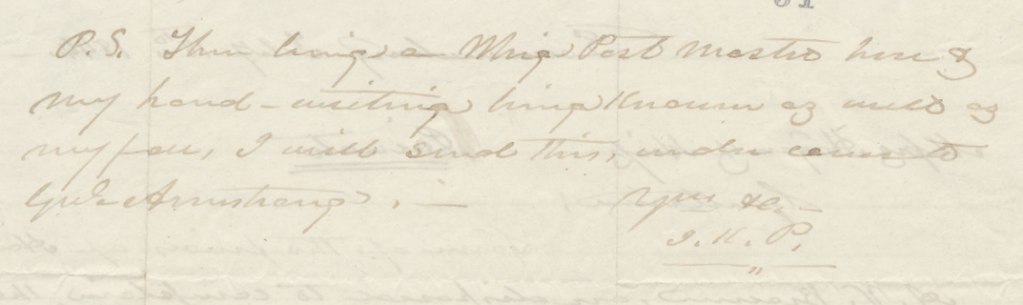 P.S. There being a Whig Post Master here &
my hand-writing being known as well as
my face, I will send this, under cover to
Genl Armstrong. —
Yours &c. —
J. K. P.